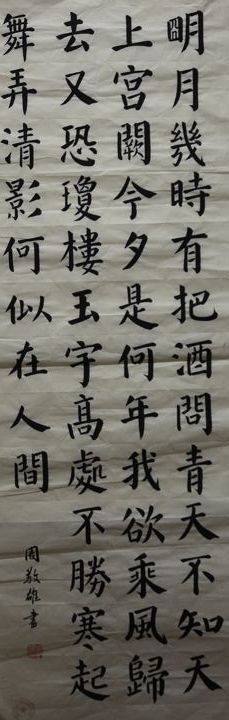 朙月幾時有把酒問青天不知天
上宮闕今夕是何年我欲乘風歸
去又恐瓊樓玉宇高處不勝寒起
舞弄清影何似在人間
周敬雄書